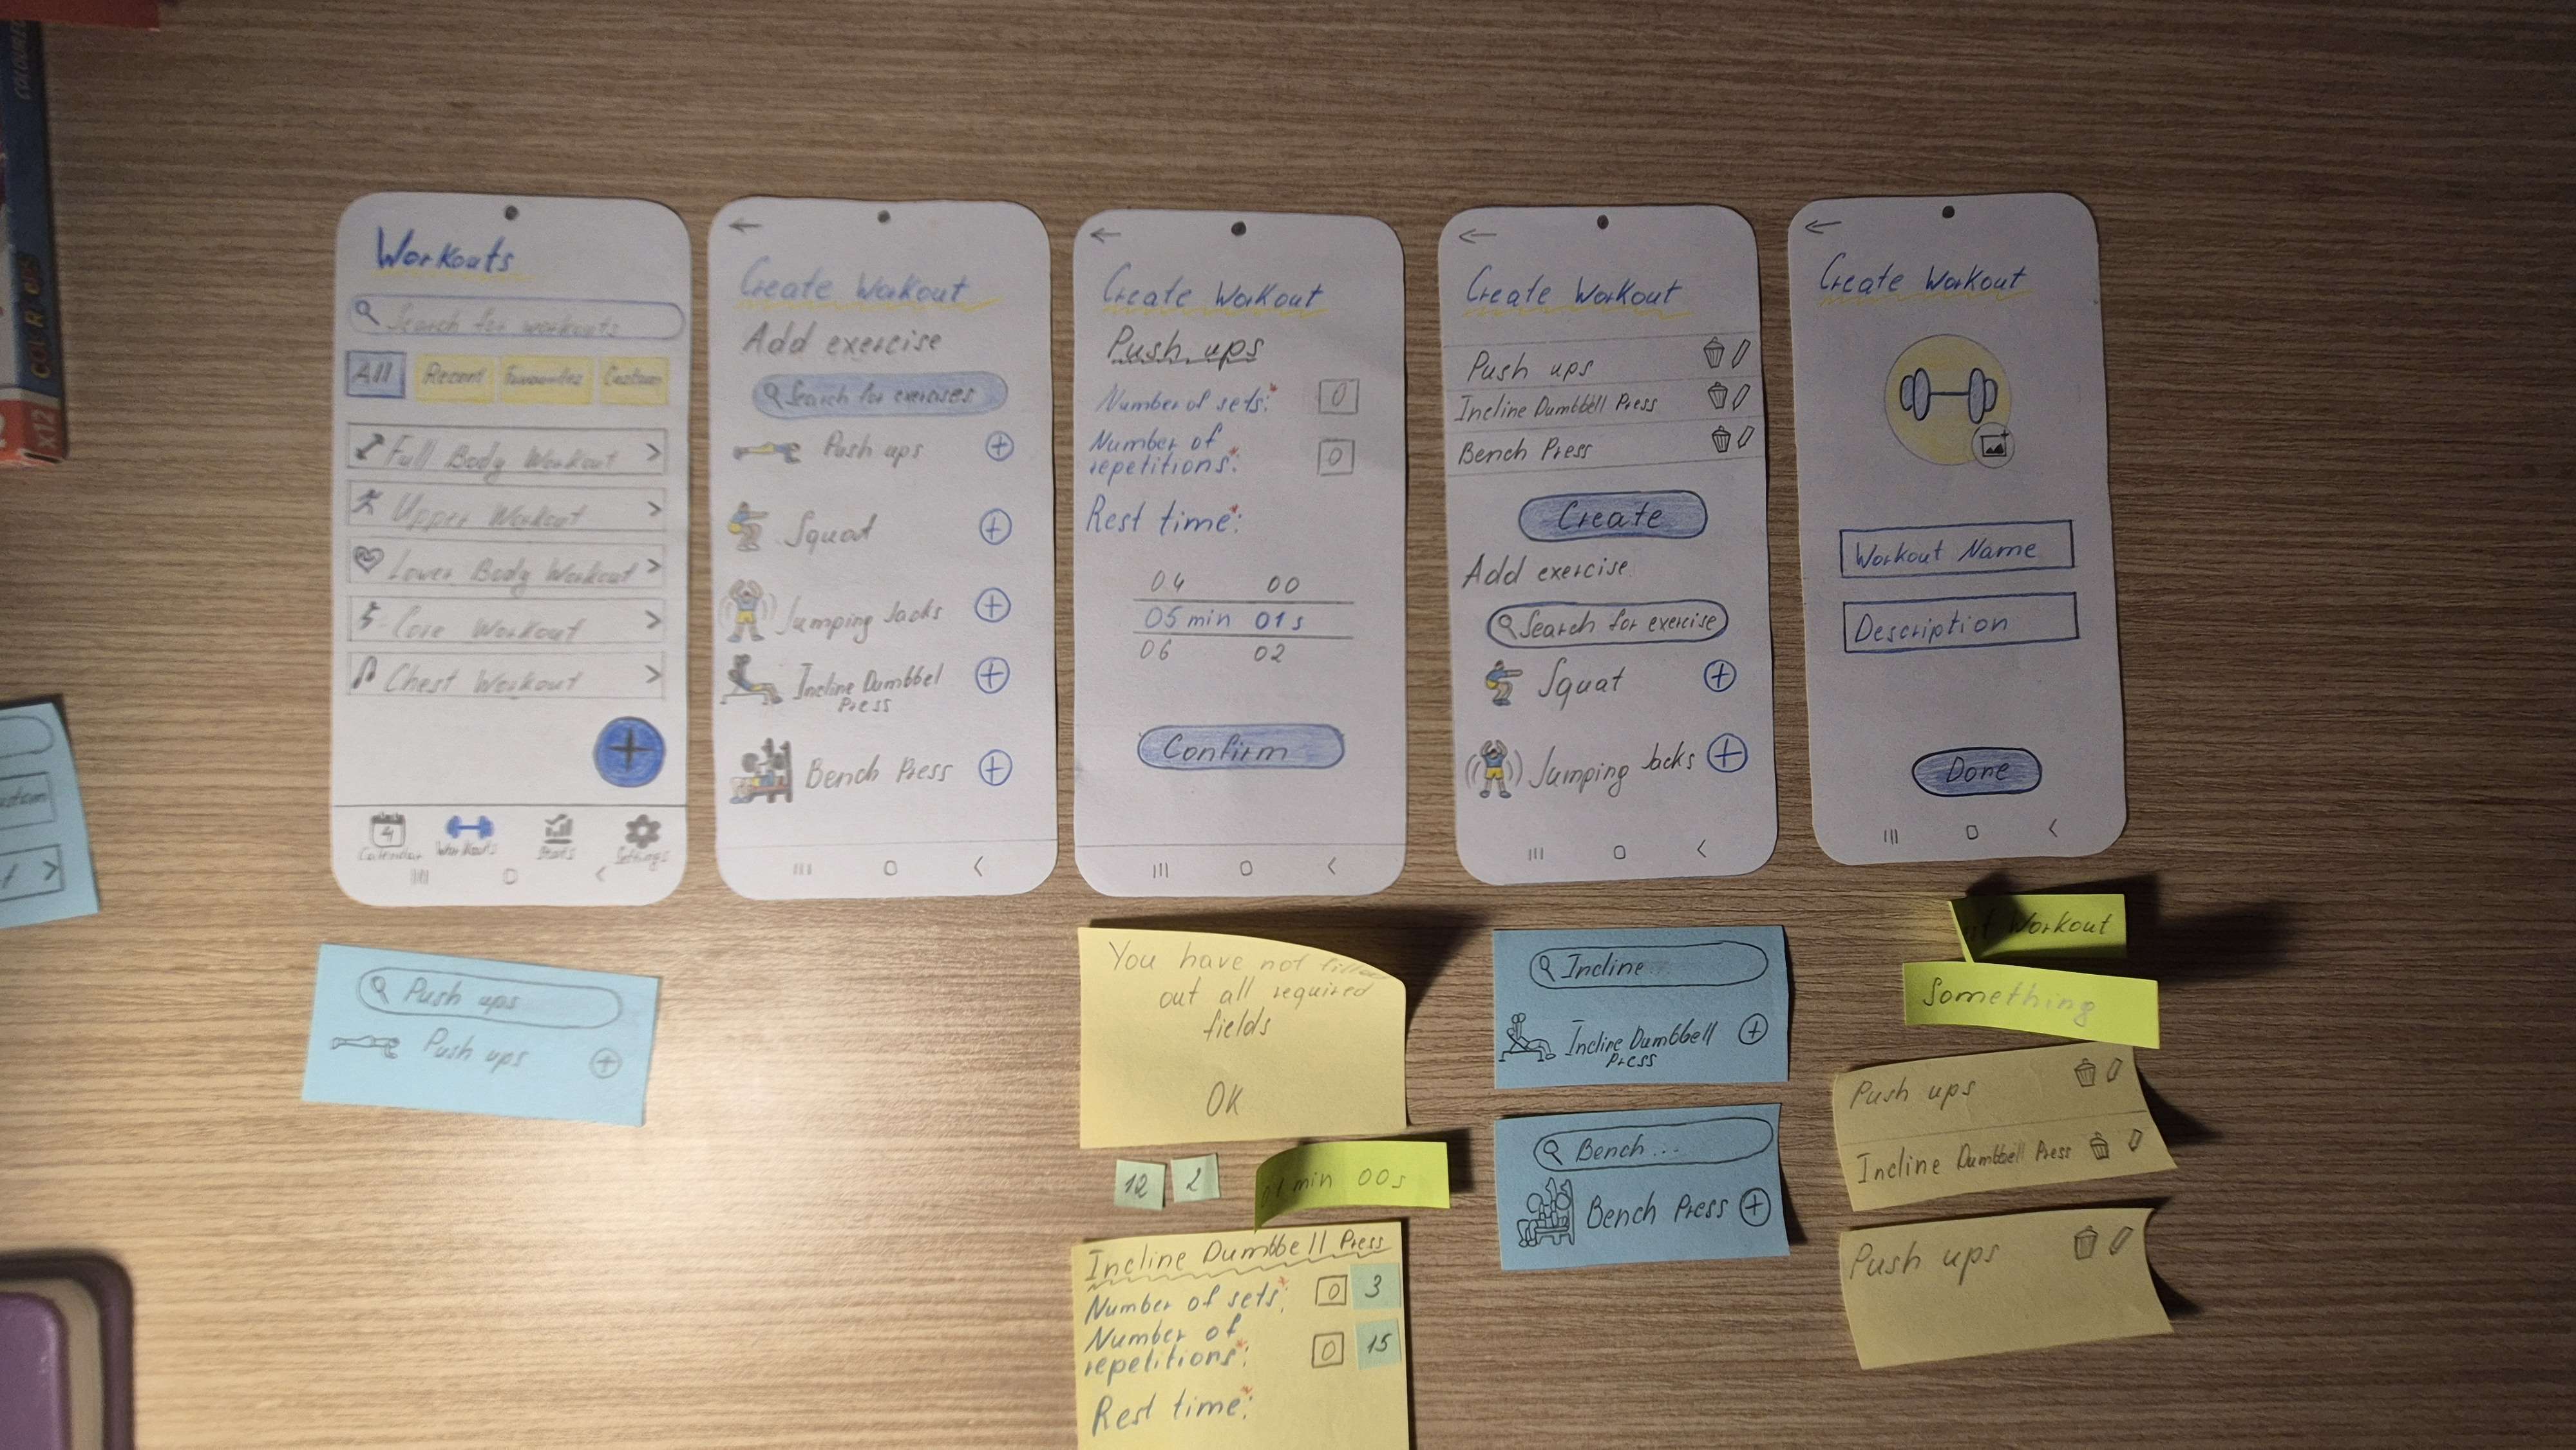 COLOURED
COL R ERS
x12
Workouts
Search for workouts
All
Recent
Favourites
Custom
Full Body Workout >
Upper Workout >
Lower Body Workout >
Core Workout >
Chest Workout >
+
4
Calendar
Workouts
Stats
Settings
Create Workout
Add exercise
Search for exercises
Push ups +
Squat +
Jumping Jacks +
Incline Dumbbel
Press +
Bench Press +
Create Workout
Push ups
Number of sets:* 0
Number of
repetitions:* 0
Rest time:*
04 00
05 min 01 s
06 02
Confirm
Create Workout
Push ups
Incline Dumbbell Press
Bench Press
Create
Add exercise
Search for exercise
Squat +
Jumping Jacks +
Create Workout
Workout Name
Description
Done
Push ups
Push ups +
You have not filled
out all required
fields
OK
12
2
min 00s
Incline Dumbbell Press
Number of sets:* 0 3
Number of
repetitions:* 0 15
Rest time:*
Incline
Incline Dumbbell
Press +
Bench...
Bench Press +
Workout
Something
Push ups
Incline Dumbbell Press
Push ups